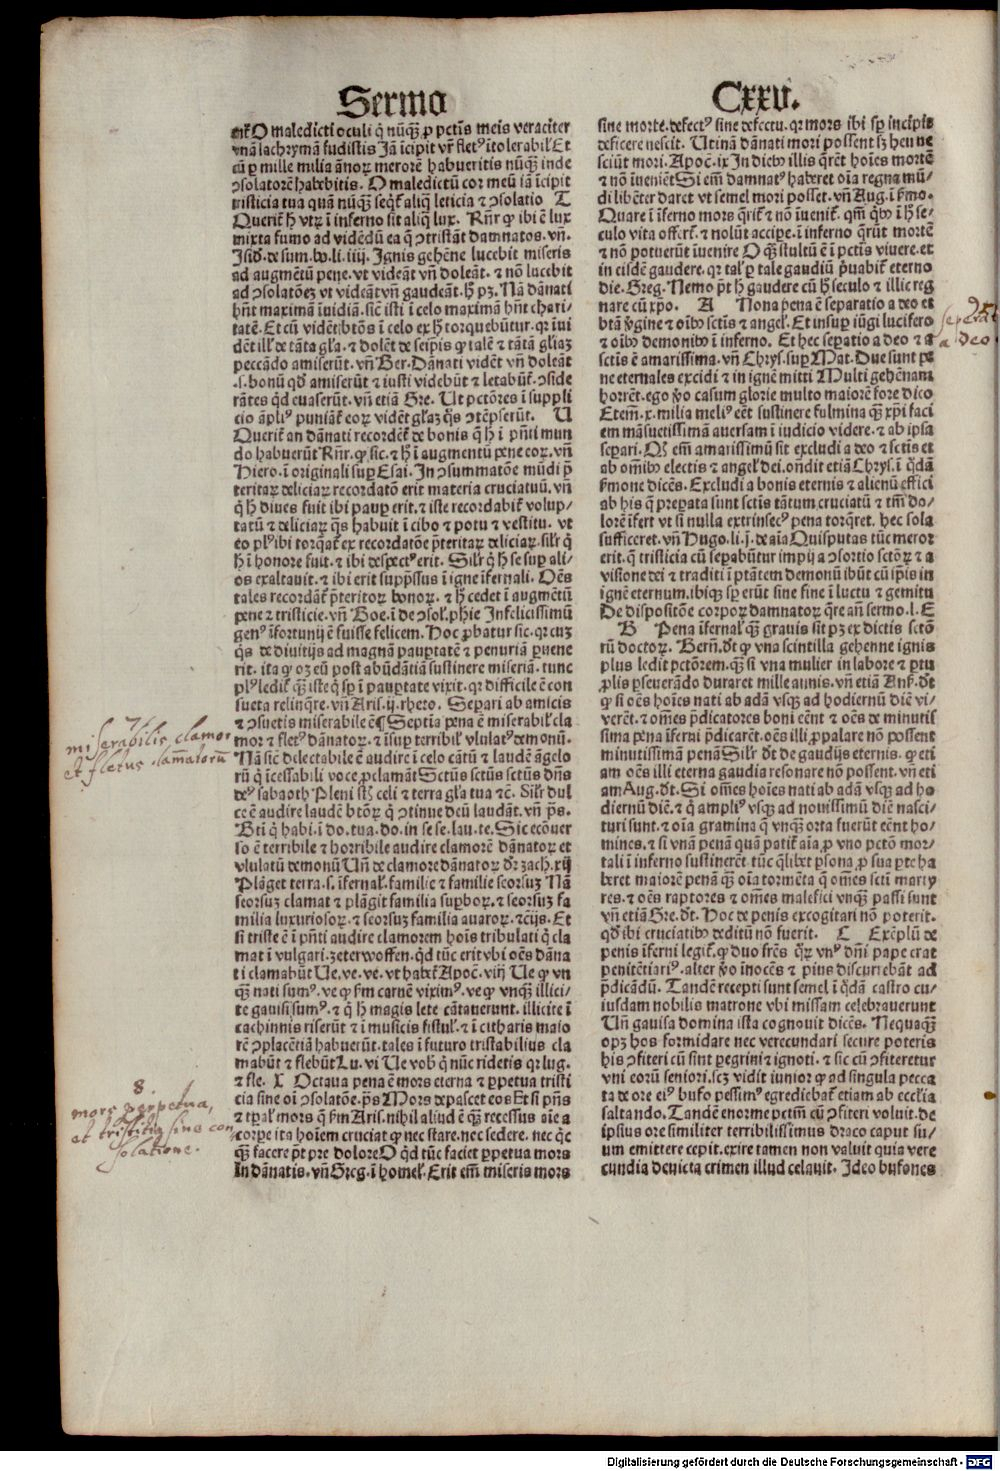 Sermo
CXXV.
nēt O maledicti oculi q̄ nūqȝ ꝓ pctīs meis veraciter
vnā lachrymā fudistis Jā īcipit vr̄ fletꝰ ītolerabil̕ Et
cū ꝑ mille milia ānoꝝ merorē habueritis nūqȝ inde
ↄsolatorē habebitis. O maledictū cor meū iā īcipit
tristicia tua quā nūqȝ seqt̄ aliq̄ leticia ⁊ ↄsolatio T
Querit̄ h̄ vtꝝ ī inferno sit aliq̄ lux. Rn̄r ꝙ ibi ē lux
mixta fumo ad vidēdū ea q̄ ↄtristāt damnatos. vn̄.
Jsid̕. de sum. bo. li. iiij. Jgnis gehēne lucebit miseris
ad augmētū pene. vt videāt vn̄ doleāt. ⁊ nō lucebit
ad ↄsolatōeȝ vt videāt vn̄ gaudeāt. h̄ pȝ. Nā dānati
hn̄t maximā īuidiā. sic̄ isti ī celo maximā hn̄t chari/
tatē. Et cū vidēt btōs ī celo ex h̄ torquebūtur. qꝛ īui
dēt ill̕ de tāta gl̕a. ⁊ dolēt de seip̄is ꝙ talē ⁊ tātā gl̕aȝ
peccādo amiserūt. vn̄ Ber. Dānati vidēt vn̄ doleāt
.s. bonū qd̕ amiserūt ⁊ iusti videbūt ⁊ letabūt̄. ↄside
rātes qd̕ euaserūt. vn̄ etiā Gre. Ut pctōres ī suppli
cio āpliꝰ puniāt̄ eoꝝ vidēt gl̕aȝ q̄s ↄtēpserūt. U
Querit̄ an dānati recordēt̄ de bonis q̄ h̄ ī pn̄ti mun
do habuerūt Rn̄r. ꝙ sic. ⁊ h̄ ī augmentū pene eoꝝ. vn̄
Hiero. ī originali suꝑ Esai. Jn ↄsummatōe mūdi p̄
teritaꝝ deliciaꝝ recordatō erit materia cruciatuū. vn̄
q̄ h̄ diues fuit ibi pauꝑ erit. ⁊ iste recordabit̄ volup/
tatū ⁊ deliciaꝝ q̄s habuit ī cibo ⁊ potu ⁊ vestitu. vt
eo plꝰ ibi torq̄at̄ ex recordatōe p̄teritaꝝ deliciaꝝ. sil̕r q̄
h̄ ī honore fuit. ⁊ ibi despectꝰ erit. Sil̕r q̄ h̄ se suꝑ ali/
os exaltauit. ⁊ ibi erit supp̄ssus ī igne īfernali. Oēs
tales recordāt̄ p̄teritoꝝ bonoꝝ. ⁊ h̄ cedet ī augmētū
pene ⁊ tristicie. vn̄ Boe. ī de ↄsol. ph̄ie Jnfelicissimū
genꝰ īfortunij ē fuisse felicem. Hoc ꝓbatur sic. qꝛ cuȝ
q̄s de diuitijs ad magnā pauꝑtatē ⁊ penuriā ꝑuene
rit. ita ꝙ oȝ eū post abūdātiā sustinere miseriā. tunc
plꝰ ledit̄ qȝ iste q̄ sꝑ ī pauꝑtate vixit. qꝛ difficile ē con
sueta relinq̄re. vn̄ Aris. ij. rheto. Separi ab amicis
⁊ ↄsuetis miserabile ē¶ Septīa pena ē miserabil̕ cla
mor ⁊ fletꝰ dānatoꝝ. ⁊ īsuꝑ terribil̕ vlulatꝰ demonū.
Nā sic̄ delectabile ē audire ī celo cātū ⁊ laudē āgelo
rū q̄ īcessabili voce ꝓclamāt Sctūs sctūs sctūs dn̄s
deꝰ sabaoth Pleni st̄ celi ⁊ terra gl̕a tua ⁊c̄. Sil̕r dul
ce ē audire laudē btōꝝ q̄ ↄtinue deū laudāt. vn̄ p̄s.
Bti q̄ habi. ī do. tua. do. in se se. lau. te. Sic ecōuer
so ē terribile ⁊ horribile audire clamorē dānatoꝝ et
vlulatū demonū Un̄ de clamore dānatoꝝ dr̄ zach. xij
Plāget terra .s. īfernal̕. familie ⁊ familie seorsuȝ Nā
seorsuȝ clamat ⁊ plāgit familia suꝑboꝝ. ⁊ seorsuȝ fa
milia luxuriosoꝝ. ⁊ seorsuȝ familia auaroꝝ. ⁊c̄ijs. Et
si triste ē ī pn̄ti audire clamorem hoīs tribulati q̄ cla
mat ī vulgari. zeterwoffen. qd̕ tūc erit vbi oēs dāna
ti clamabūt Ue. ve. ve. vt habet̄ Apoc̄. viij Ue ꝙ vn
qȝ nati sumꝰ. ve ꝙ s̄m carnē viximꝰ. ve ꝙ vnqȝ illici/
te gauisi sumꝰ. ⁊ q̄ h̄ magis lete cātauerunt. illicite ī
cachinnis riserūt ⁊ ī musicis fistul̕. ⁊ ī citharis maio
rē ↄplacētiā habuerūt. tales ī futuro tristabilius cla
mabūt ⁊ flebūt Lu. vi Ue vob̕ q̄ nūc ridetis qꝛ lug.
⁊ fle. X Octaua pena ē mors eterna ⁊ ꝑpetua tristi
cia sine oī ↄsolatōe. p̄s Mors depascet eos Et si pn̄s
⁊ tꝑal̕ mors q̄ s̄m Aris. nihil aliud ē qȝ recessus aīe a
corꝑe ita hoīem cruciat ꝙ nec stare. nec sedere. nec qc̄
qȝ facere pt̄ pre dolore O qd̕ tūc faciet ꝑpetua mors
in dānatis. vn̄ Greg. ī homel̕. Erit em̄ miseris mors
sine morte. defectꝰ sine defectu. qꝛ mors ibi sꝑ incipis
deficere nescit. Utinā dānati mori possent sȝ heu ne
sciūt mori. Apoc̄. ix Jn diebꝰ illis q̄rēt hoīes mortē
⁊ nō īueniēt Si em̄ damnatꝰ haberet oīa regna mū/
di libēter daret vt semel mori posset. vn̄ Aug. ī s̄mo.
Quare ī īferno mors q̄rit̄ ⁊ nō īuenit̄. qm̄ qbꝰ ī h̄ se/
culo vita offert̄. ⁊ nolūt accipe. ī inferno q̄rūt mortē
⁊ nō potuerūt īuenire O qȝ stultū ē ī pctīs viuere. et
in eisdē gaudere. qꝛ tal̕ ꝑ tale gaudiū p̄uabit̄ eterno
die. Greg. Nemo pt̄ h̄ gaudere cū h̄ seculo ⁊ illic reg
nare cū xp̄o. A Nona pena ē separatio a deo et
btā v̄gine ⁊ oībꝰ sctīs ⁊ angel̕. Et insuꝑ iūgi lucifero
⁊ oībꝰ demonibꝰ ī inferno. Et hec seꝑatio a deo ⁊ a
sctīs ē amarissima. vn̄ Chrys. suꝑ Mat. Due sunt pe
ne eternales excidi ⁊ in ignē mitti Multi gehēnam
horrēt. ego v̄o casum glorie multo maiorē fore dico
Etem̄. x. milia meliꝰ eēt sustinere fulmina qȝ xp̄i faci
em māsuetissimā auersam ī iudicio videre. ⁊ ab ipsa
seꝑari. Qd̕ em̄ amarissimū sit excludi a deo ⁊ sctīs et
ab omībꝰ electis ⁊ angel̕ dei. on̄dit etiā Chrys. ī qd̄ā
s̄mone dicēs. Excludi a bonis eternis ⁊ alienū effici
ab his q̄ preꝑata sunt sctīs tātum cruciatū ⁊ tm̄ do/
lorē īfert vt si nulla extrinsecꝰ pena torq̄ret. hec sola
sufficeret. vn̄ Hugo. li. j. de aīa Quis putas tūc meror
erit. q̄ tristicia cū seꝑabūtur impij a ↄsortio sctōꝝ ⁊ a
visione dei ⁊ traditi ī ptātem demonū ibūt cū ip̄is in
ignē eternum. ibiqꝫ sꝑ erūt sine fine ī luctu ⁊ gemitu
De dispositōe corpoꝝ damnatoꝝ q̄re an̄ sermo. l. E
B Pena īfernal̕ qȝ grauis sit pȝ ex dictis sctō
rū doctoꝝ. Bern̄. dt̄ ꝙ vna scintilla gehenne ignis
plus ledit pctōrem. qȝ si vna mulier in labore ⁊ ꝑtu
ꝓlis ꝑseuerādo duraret mille annis. vn̄ etiā Ans̄. dt̄
ꝙ si oēs hoīes nati ab adā vsqꝫ ad hodiernū diē vi/
verēt. ⁊ omēs p̄dicatores boni eēnt ⁊ oēs de minutis
sima pena īferni p̄dicarēt. oēs illi ꝓpalare nō possent
minutissimā penā Sil̕r dt̄ de gaudijs eternis. ꝙ eti
am oēs illi eterna gaudia resonare nō possent. vn̄ eti
am Aug. dt̄. Si omēs hoīes nati ab adā vsqꝫ ad ho
diernū diē. ⁊ q̄ ampliꝰ vsqꝫ ad nouissimū diē nasci/
turi sunt. ⁊ oīa gramina q̄ vnqȝ orta fuerūt eēnt ho/
mines. ⁊ si vnā penā quā patit̄ aīa ꝓ vno pctō mor/
tali ī inferno sustinerēt. tūc q̄libet ꝑsona ꝓ sua ꝑte ha
beret maiorē penā qȝ oīa tormēta q̄ omēs sctī marty
res. ⁊ oēs raptores ⁊ omēs malefici vnqȝ passi sunt
vn̄ etiā Gre. dt̄. Hoc de penis excogitari nō poterit.
qd̕ ibi cruciatibꝰ deditū nō fuerit. C Exēplū de
penis īferni legit̄. ꝙ duo fr̄es q̄ꝝ vnꝰ dn̄i pape erat
penitētiariꝰ. alter v̄o inocēs ⁊ pius discurrebāt ad
p̄dicādū. Tandē recepti sunt semel ī qd̄ā castro cu/
iusdam nobilis matrone vbi missam celebrauerunt
Un̄ gauisa domina ista cognouit dicēs. Nequaqȝ
opȝ hos formidare nec verecundari secure poteris
his ↄfiteri cū sint ꝑegrini ⁊ ignoti. ⁊ sic cū ↄfiteretur
vni eorū seniori. scȝ vidit iunior ꝙ ad singula pecca
ta de ore eiꝰ bufo pessimꝰ egrediebat̄ etiam ab ecclīa
saltando. Tandē enorme pctm̄ cū ↄfiteri voluit. de
ipsius ore similiter terribilissimus draco caput su/
um emittere cepit. exire tamen non valuit quia vere
cundia deuicta crimen illud celauit. Jdeo bufones
9.
seperatio
a deo.
7.
miserabilis clamor
et fletus damnatorū
8.
mors perpetua,
et tristitia sine con
solatione.
Digitalisierung gefördert durch die Deutsche Forschungsgemeinschaft - DFG